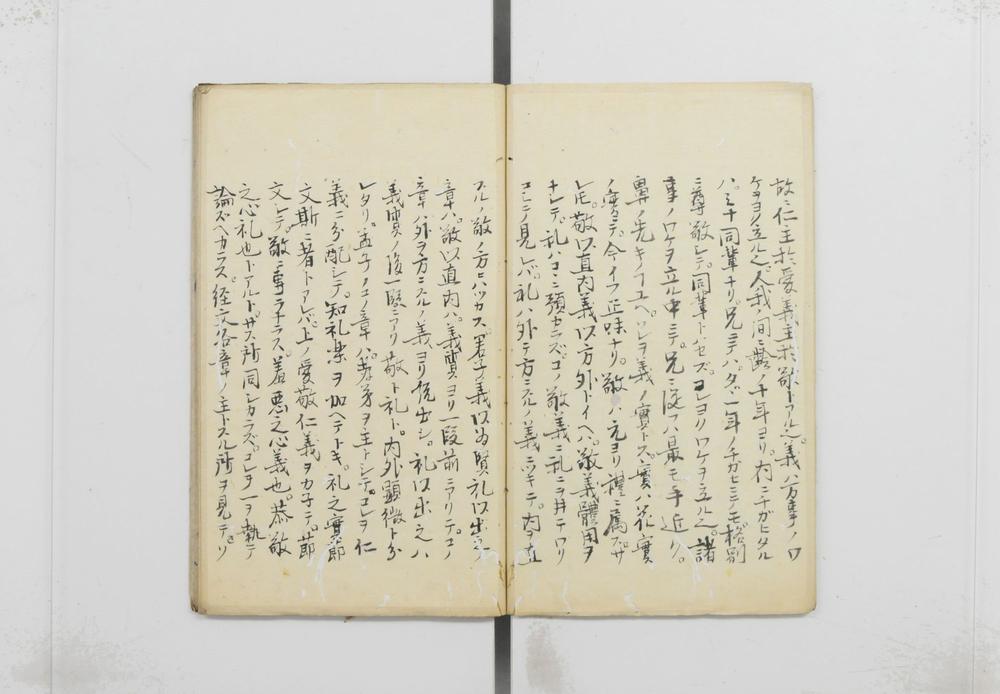 故ニ仁主於愛義主於敬トアル也。義ハ万事ノワ
ケヲヨク立ル也。人我ノ間ニ ノ千年ヨリ。内ニチガヒタル
ハ。ミナ同輩ナリ。兄ニテハ。タヾ一年ノチガヒニテモ格別
ニ尊敬シテ。同輩トセズ。コレヨリワケヲ立ル也。諸
事ノワケヲ立ル中ニテ。兄ニ従フハ最モ手近ク。
鼻ノ先キノフユヘ。ソレヲ義ノ實トス。實ハ花實
ノ實ニテ。今イフ正味ナリ。敬ハ元ヨリ禮ニ属ス。サ
レ圧。敬以直内義以方外トイヘバ。敬義體用ヲ
ナシテ。礼ハコヽニ預カラズ。コノ敬義ニ礼ニヲ井テワリ
コミノ見レバ。礼ハ外テ方ニスルノ義ニツキテ。内ヲ直
スルノ敬ノ方ニハツカズ。君子義以為質礼以出之
章ハ。敬以直内ハ。義質ヨリ一段前ニアリテ。コノ
章ハ外ヲ方ニスルノ義ヨリ侻出シ。礼以出之ハ
義質ノ後一 ニアリ。敬ト礼ト。内外顕微ト分
レタリ。孟子ノコノ章ハ。孝弟ヲ主トシテ。コレヲ仁
義ニ分配シテ。知礼楽ヲ加ヘテトキ。礼之實節
文斯二者トアレバ。上ノ愛敬仁義ヲカ子テ。節
文シテ。敬ニ専ラナラズ。羞悪之心義也。恭敬
之心礼也トアルト。サス所同シカラズ。コレヲ一ヲ執テ
論ズヘカラス。経文各章ノ主トスル所ヲ見テ。ソ